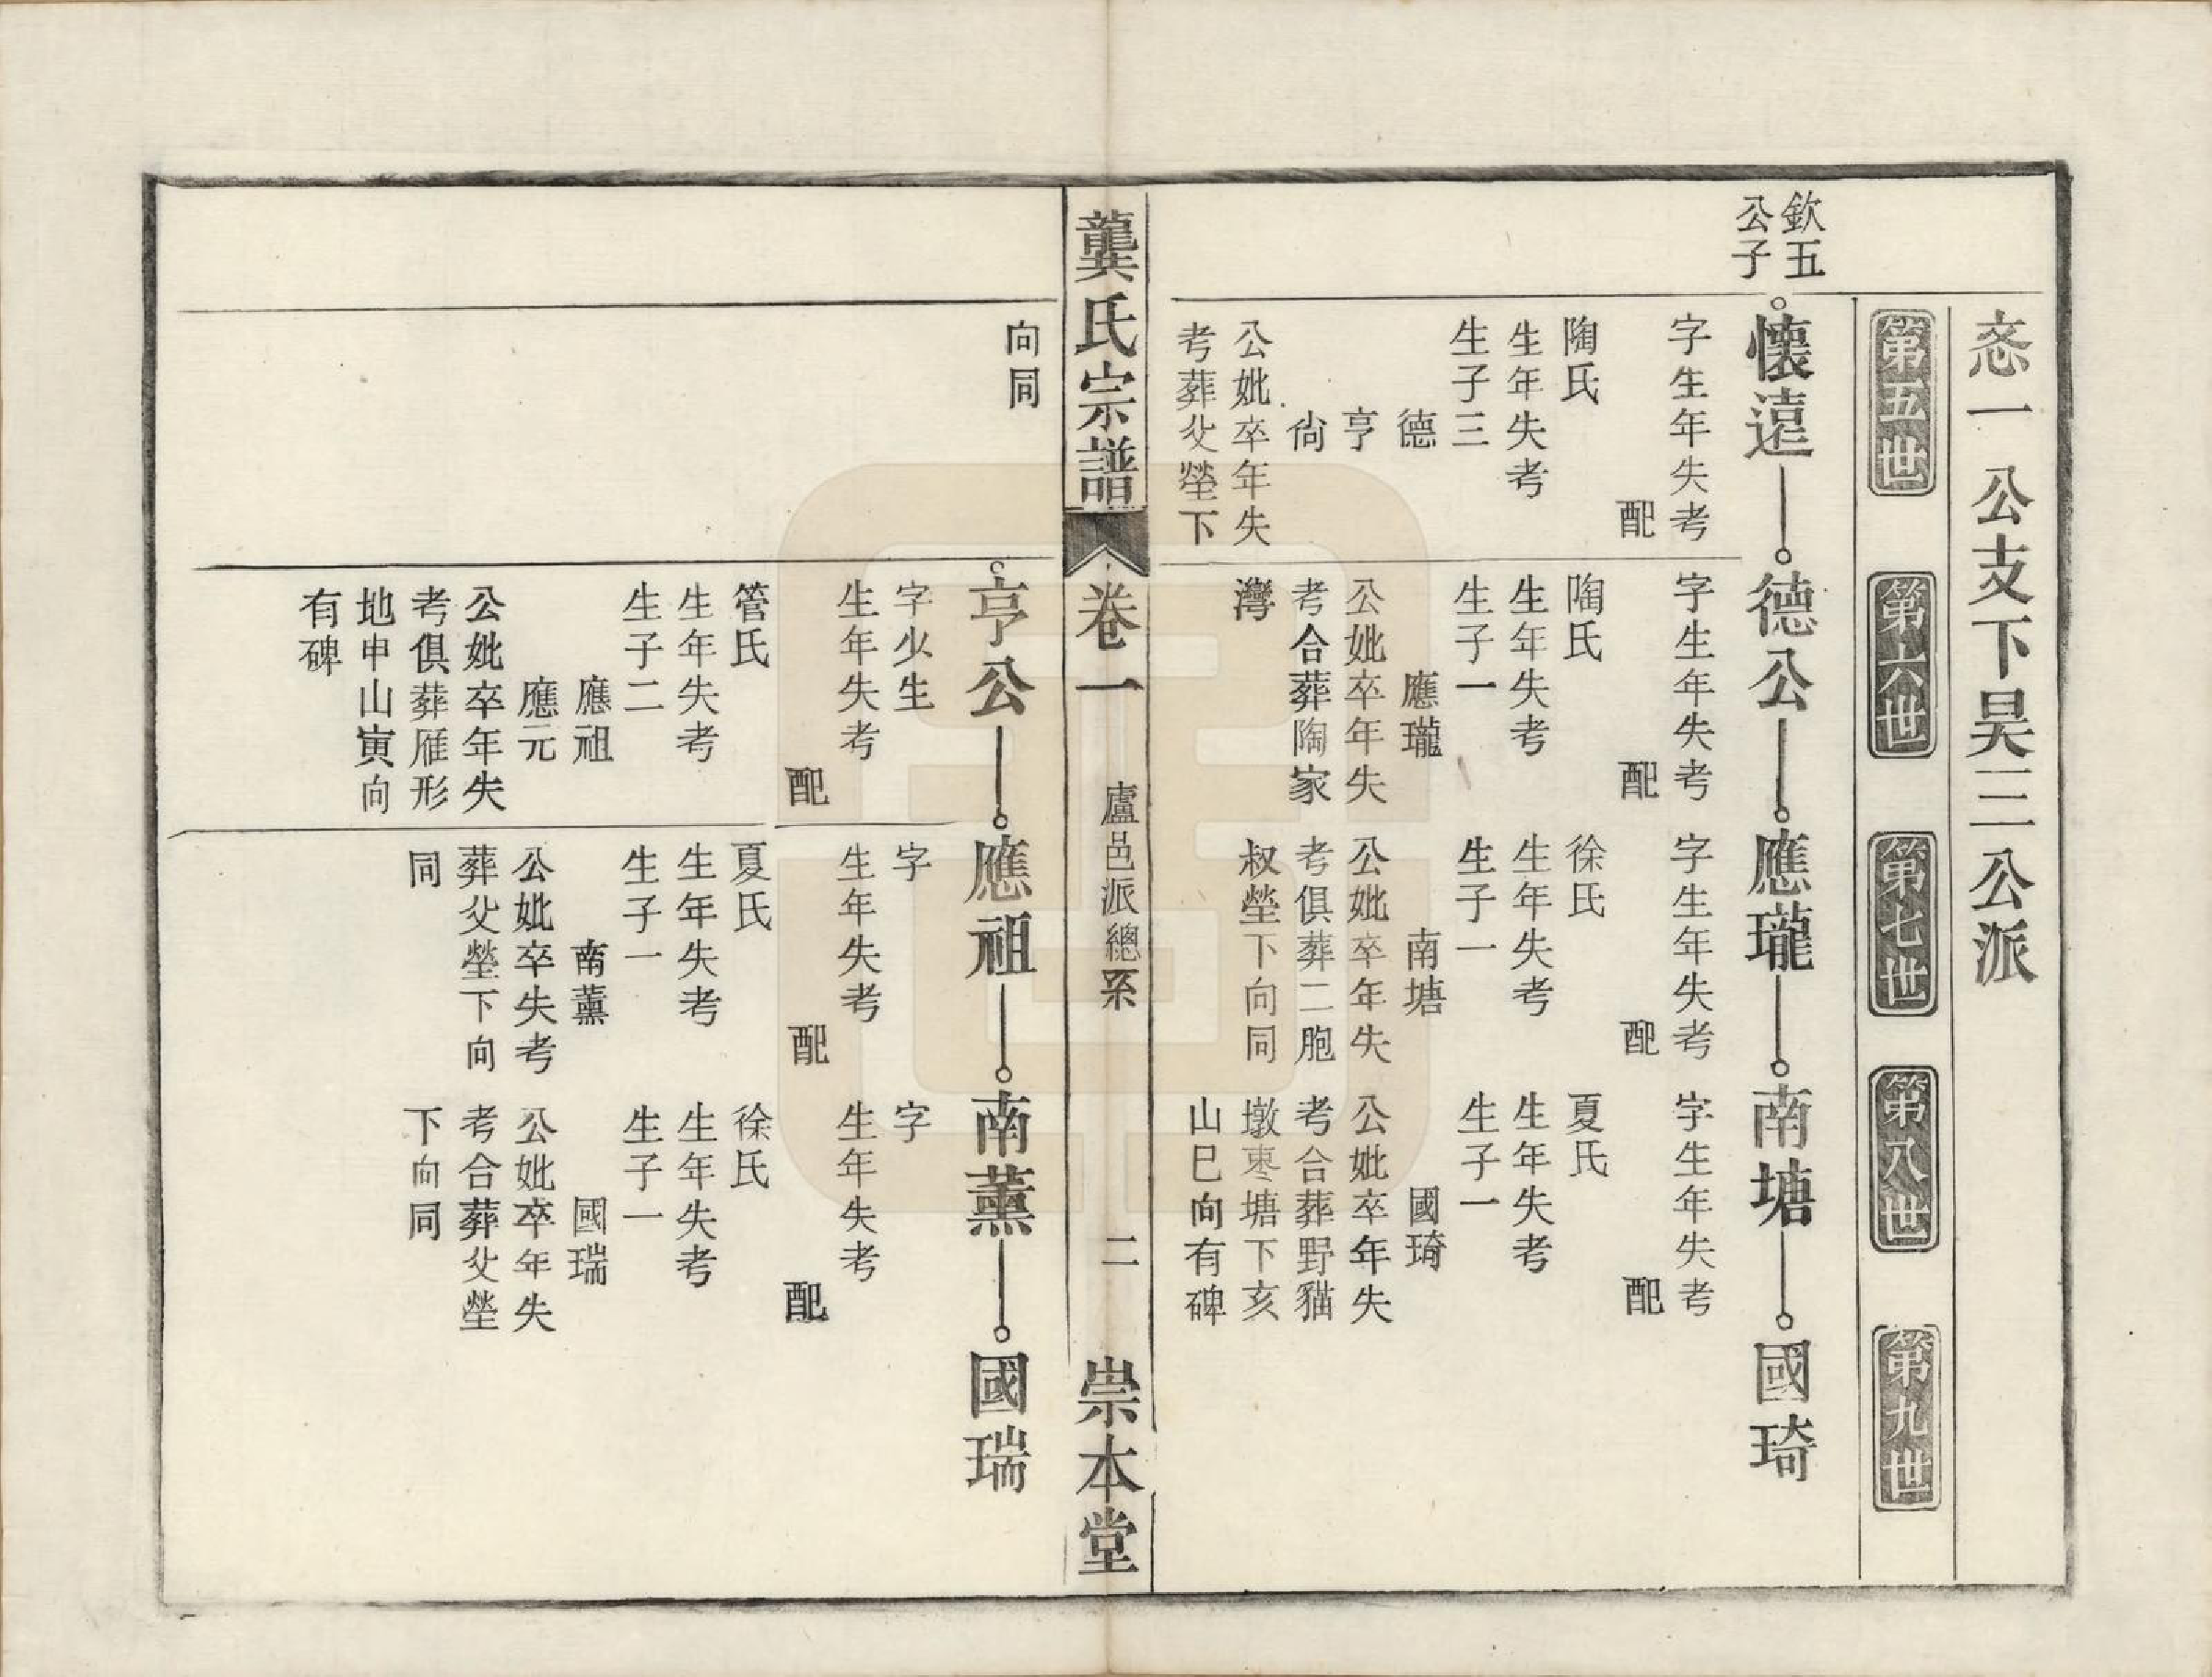 忞一公支下吴三公派
第五世
第六世
第七世
第八世
第九世
欽五
公子
懷遠
德公
應瓏
南塘
國琦
字生年失考
配
陶氏
生年失考
生子三
德
亨
尙
公妣卒年失
考葬父塋下
字生年失考
配
陶氏
生年失考
生子一
應瓏
公妣卒年失
考合葬陶家
灣
字生年失考
配
徐氏
生年失考
生子一
南塘
公妣卒年失
考俱葬二胞
叔塋下向同
字生年失考
配
夏氏
生年失考
生子一
國琦
公妣卒年失
考合葬野貓
墩枣塘下亥
山巳向有碑
龔氏宗譜
卷一
盧邑派總系
二
崇本堂
向同
亨公
應祖
南薰
國瑞
字少生
生年失考
配
管氏
生年失考
生子二
應祖
應元
公妣卒年失
考俱葬雁形
地申山寅向
有碑
字
生年失考
配
夏氏
生年失考
生子一
南薰
公妣卒失考
葬父塋下向
同
字
生年失考
配
徐氏
生年失考
生子一
國瑞
公妣卒年失
考合葬父塋
下向同